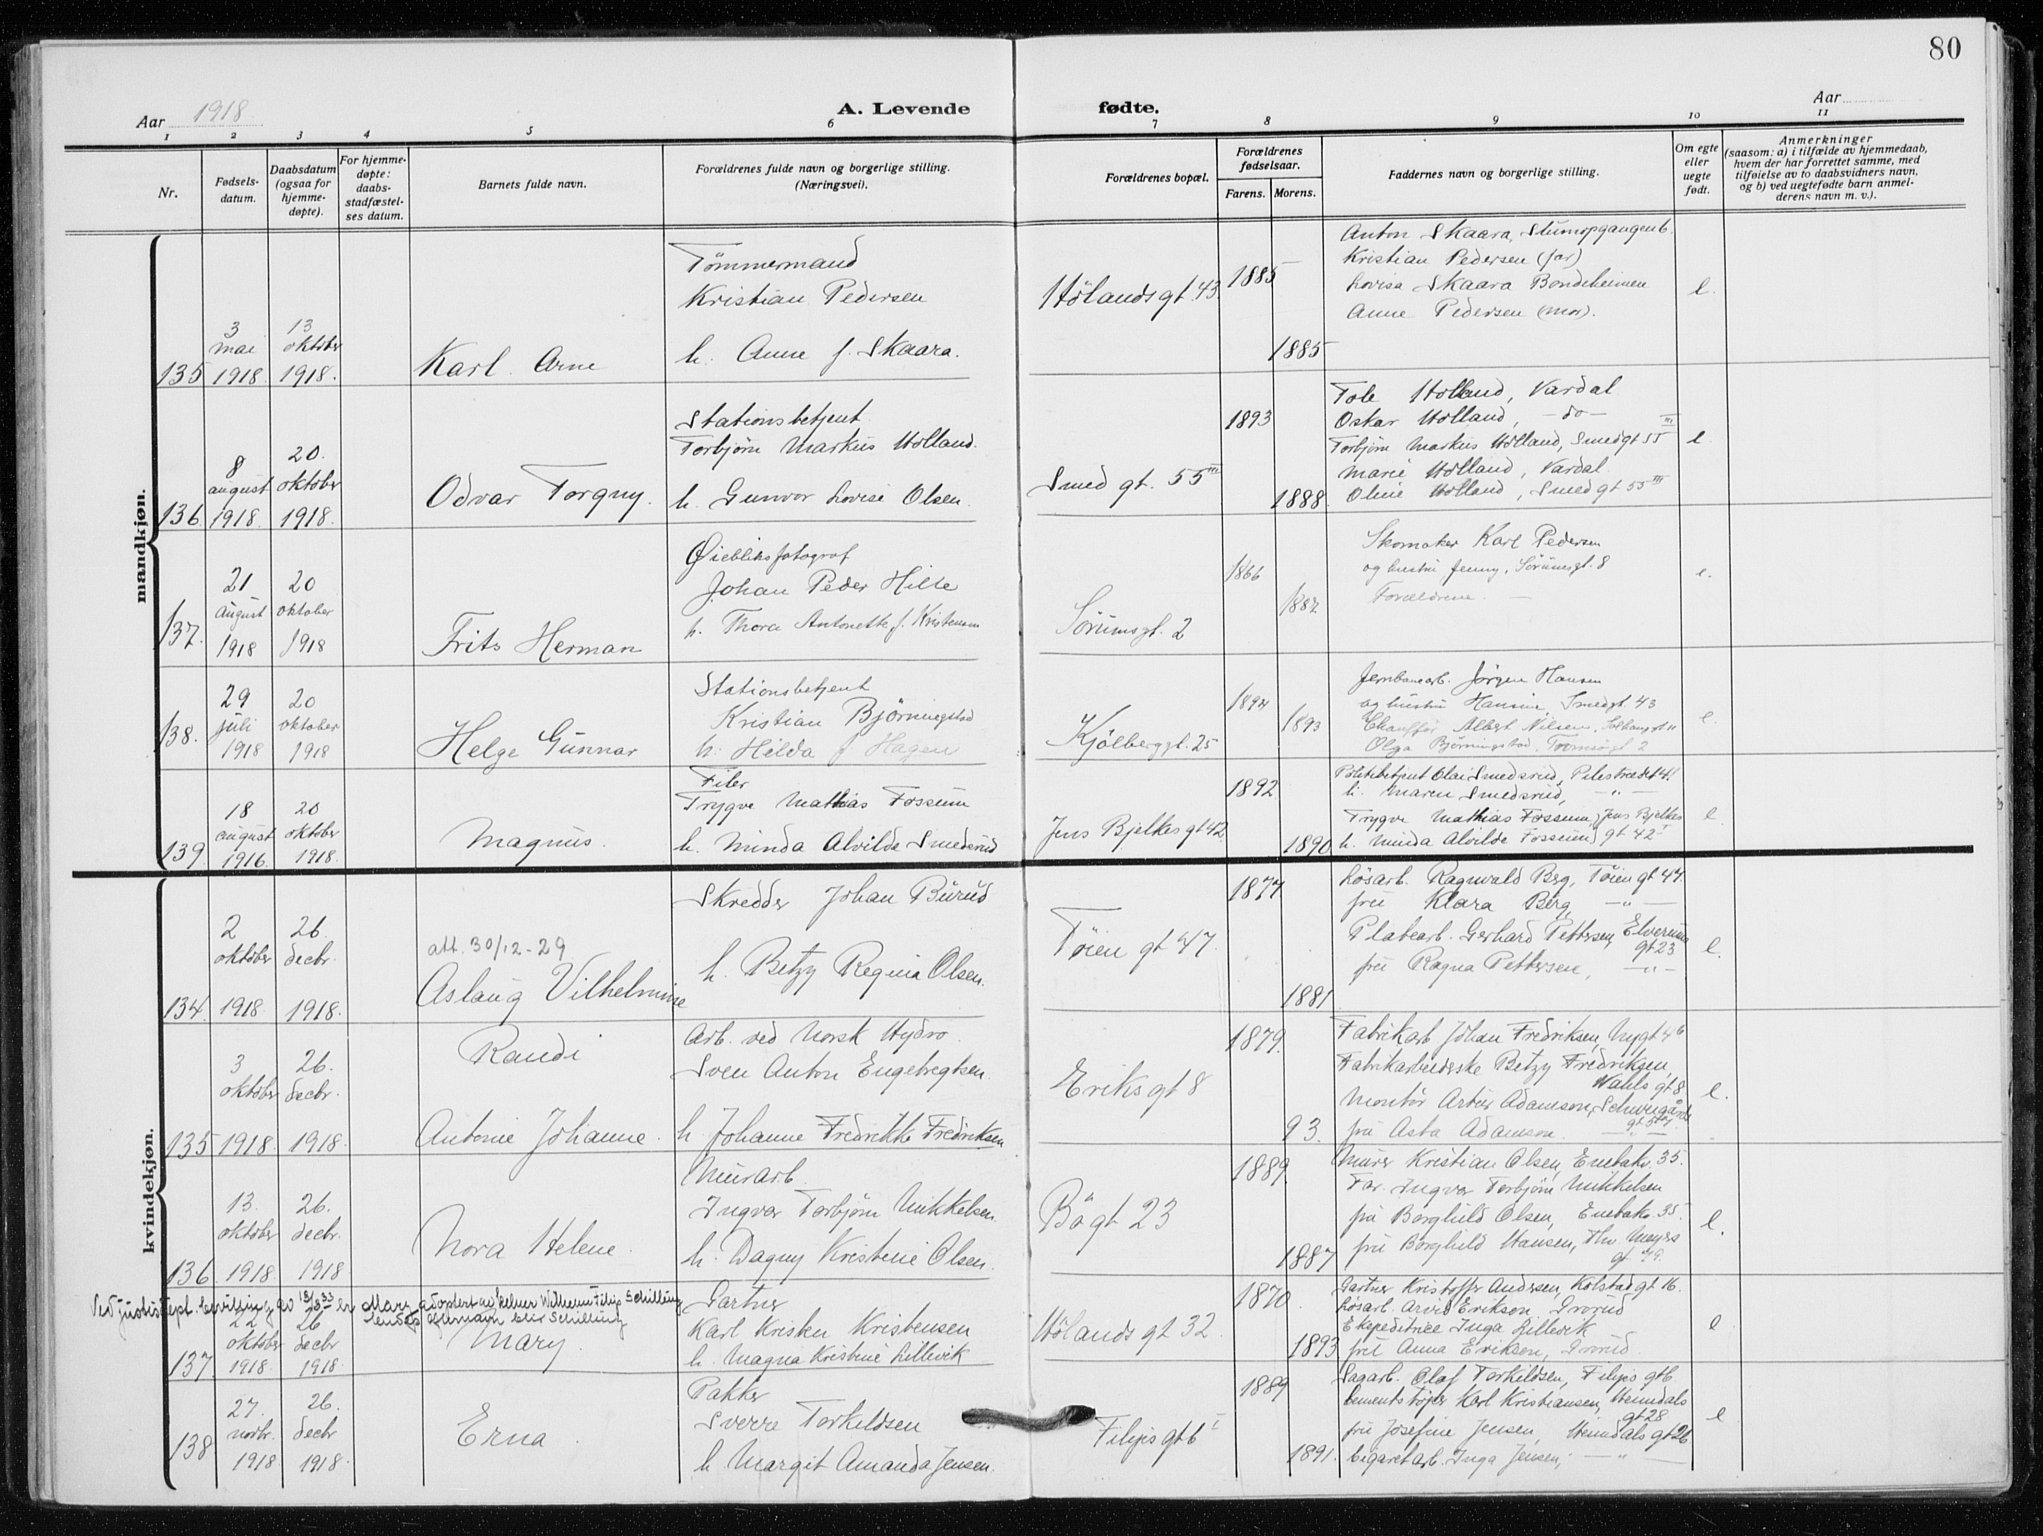 80
Aar 1918
A. Levende fødte.
Aar
1 2 3 4 5 6 7 8 9 10 11
Nr.
Fødsels-
datum.
Daabsdatum
(ogsaa for
hjemme-
døpte).
For hjemme-
døpte:
daabs-
stadfæstel-
ses datum.
Barnets fulde navn.
Forældrenes fulde navn og borgerlige stilling.
(Næringsvei).
Forældrenes bopæl.
Forældrenes
fødselsaar.
Farens. Morens.
Faddernes navn og borgerlige stilling.
Om egte
eller
uegte
født.
Anmerkninger
(saasom: a) i tilfælde av hjemmedaab,
hvem der har forrettet samme, med
tilføielse av to daabsvidners navn,
og b) ved uegtefødte barn anmel-
derens navn m. v.).
mandkjøn.
135
3
mai
1918.
13
oktober
1918.
Karl Arne
Tømmermand
Kristian Pedersen
h. Anne f. Skaara.
Hølandsgt. 43.
1885
1885
Anton Skaara, Stumopgangen 6.
Kristian Pedersen (far)
Lovisa Skaara Bondeheimen
Anne Pedersen (mor).
e.
136
8
august
1918.
20.
oktober
1918.
Odvar Torgny.
Stationsbetjent
Torbjørn Markus Holland.
h. Gunvor Lovise Olsen.
Smedgt. 55 III
1893
1888.
Tole Holland, Vardal
Oskar Holland, -do-
Torbjørn Markus Holland, Smedgt 55 III
Marie Holland, Vardal.
Oline Holland, Smedgt 55 III
e.
137.
21
august
1918
20
oktober
1918
Frits Herman
Øiebliksfotograf
Johan Peder Hilte
h. Thora Antonette f. Kristensen
Sørumsgt. 2
1866
1887.
Skomaker Karl Pedersen
og hustru Jenny, Sørumsgt. 8
Forældrene. —
e.
138.
29
juli
1918
20
oktober
1918
Helge Gunnar
Stationsbetjent
Kristian Bjørningstad
h: Hilda f Hagen
Kjølberggt. 25
1894
1893
Jernbanearb. Jørgen Hansen
og hustru Hansine, Smedgt. 43
Chauffør Albert Nilsen,
Olga Bjørningstad, Tromsøgt. 2
e.
139
18
august
1916
20
oktober
1918.
Magnus.
Filer
Trygve Mathias Fossum
h. Minda Alvilde Smedsrud
Jens Bjelkes gt 42
1892
1890
Politibetjent Olai Smedsrud, Pilestrædet 41
h. Maren Smedsrud, — " —
Trygve Mathias Fossum, Jens Bjelkes
h. Minda Alvilde Fossum, gt 42 I
e.
kvindekjøn.
134.
2
oktober
1918.
26.
decbr.
1918.
att. 30/12-29
Aslaug Vilhelmine
Skredder Johan Burud
h. Betzy Regina Olsen.
Tøien gt 47.
1877
1881
Løsarb. Ragnvald Berg, Tøien gt 47
fru Klara Berg, — " —
Platearb. Gerhard Pettersen, Elverums
gt 23
fru Ragna Pettersen, — " —
e.
135
3
oktober
1918.
26.
decbr.
1918.
Randi
Antonie Johanne.
Arb. ved Norsk Hydro.
Sven Anton Engebregtsen.
h. Johanne Fredrikke Fredriksen
Eriks gt 8
1879.
93.
Fabrikarb Johan Fredriksen, Nygt 46
Fabrikarbeiderske Betzy Fredriksen,
Wahls gt 8
Montør Artur Adamson, Schweigårds
fru Asta Adamson.
e.
136
13.
oktober
1918
26.
decbr.
1918
Nora Helene.
Murarb.
Ingvar Torbjørn Mikkelsen.
h. Dagny Kristine Olsen.
Bøgt 23
1889.
1887
Murer Kristian Olsen, Enebakv. 35.
Far. Ingvar Torbjørn Mikkelsen
fru Borghild Olsen, Enebakv. 35.
fru Borghild Hansen, Thv. Meyers
e.
Ved justisdept. bevilling av 15/8 33 er Mary adoptert av kelner Wilhelm Filip Schilling
Hendes efternavn blir Schilling
137
22
oktober
1918.
26
decbr
1918.
Mary.
Gartner
Karl Kristen Kristensen
h. Magna Kristine Lillevik
Hølands gt 32.
1870.
1893
Gartner Kristoffer Andersen, Kolstad gt 16.
Løsarb. Arvid Erikson, Grorud
Ekspeditrice Inga Lillevik
fru Anna Erikson, Grorud.
e
138
27.
novbr.
1918
26.
decbr
1918.
Erna.
Pakker
Sverre Torkildsen
h Margit Amanda Jensen.
Filips gt 6 I
1889
1891.
Sagarb. Olaf Torkildsen, Filips gt 6.
Cementstøper Karl Kristiansen, Heimdals
gt 28
fru Josefine Jensen, Heimdals gt 26
Cigaretarb. Inga Jensen, — " —
e